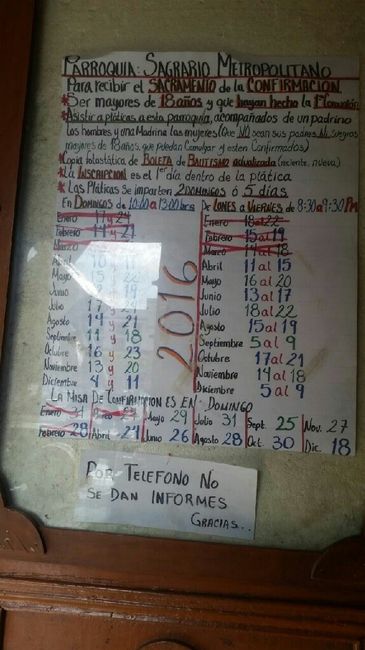 PARROQUIA: SAGRARIO METROPOLITANO
Para recibir el SACRAMENTO de la CONFIRMACION
*Ser mayores de 18 años y que hayan hecho la 1ª Comunión
*Asistir a pláticas a esta parroquia, acompañados de un padrino
los hombres y una Madrina las mujeres (Que NO sean sus padres NI suegros
mayores de 18 años, que puedan Comulgar y esten Confirmados)
*Copia fotostática de BOLETA de BAUTISMO actualizada (reciente, nueva)
*LA INSCRIPCION es el 1er día dentro de la plática
*Las Pláticas se imparten 2 DOMINGOS ó 5 días
EN DOMINGOS DE 10:00 A 13:00 hrs
De LUNES a VIERNES de 8:30 a 9:30 PM
2016
Enero 17 y 24
Febrero 14 y 21
Marzo
Abril
Mayo
Junio
Julio 17
Agosto 14 y 21
Septiembre 11 y 18
Octubre 16 y 23
Noviembre 13 y 20
Diciembre 4 y 11
Enero 18 al 22
Febrero 15 al 19
Marzo 14 al 18
Abril 11 al 15
Mayo 16 al 20
Junio 13 al 17
Julio 18 al 22
Agosto 15 al 19
Septiembre 5 al 9
Octubre 17 al 21
Noviembre 14 al 18
Diciembre 5 al 9
LA MISA DE CONFIRMACION ES EN: DOMINGO
Enero 31 Mayo 29 Julio 31 Sept. 25 Nov. 27
Febrero 28 Abril 24 Junio 26 Agosto 28 Oct. 30 Dic. 18
POR TELEFONO NO
SE DAN INFORMES
GRACIAS...